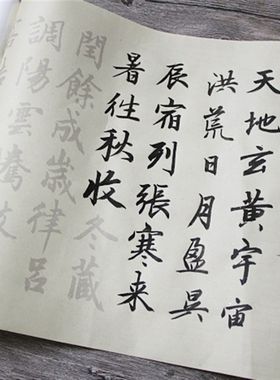 天地玄黄宇宙
洪荒日月盈昃
辰宿列張寒来
暑往秋收冬藏
閏餘成歲律吕
調陽雲騰